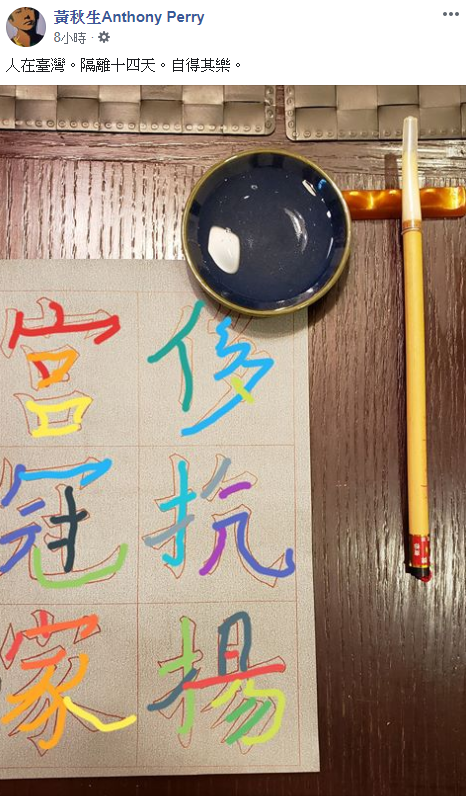 黃秋生Anthony Perry
8小時 ·
人在臺灣。隔離十四天。自得其樂。
侈抗揚
宮冠家